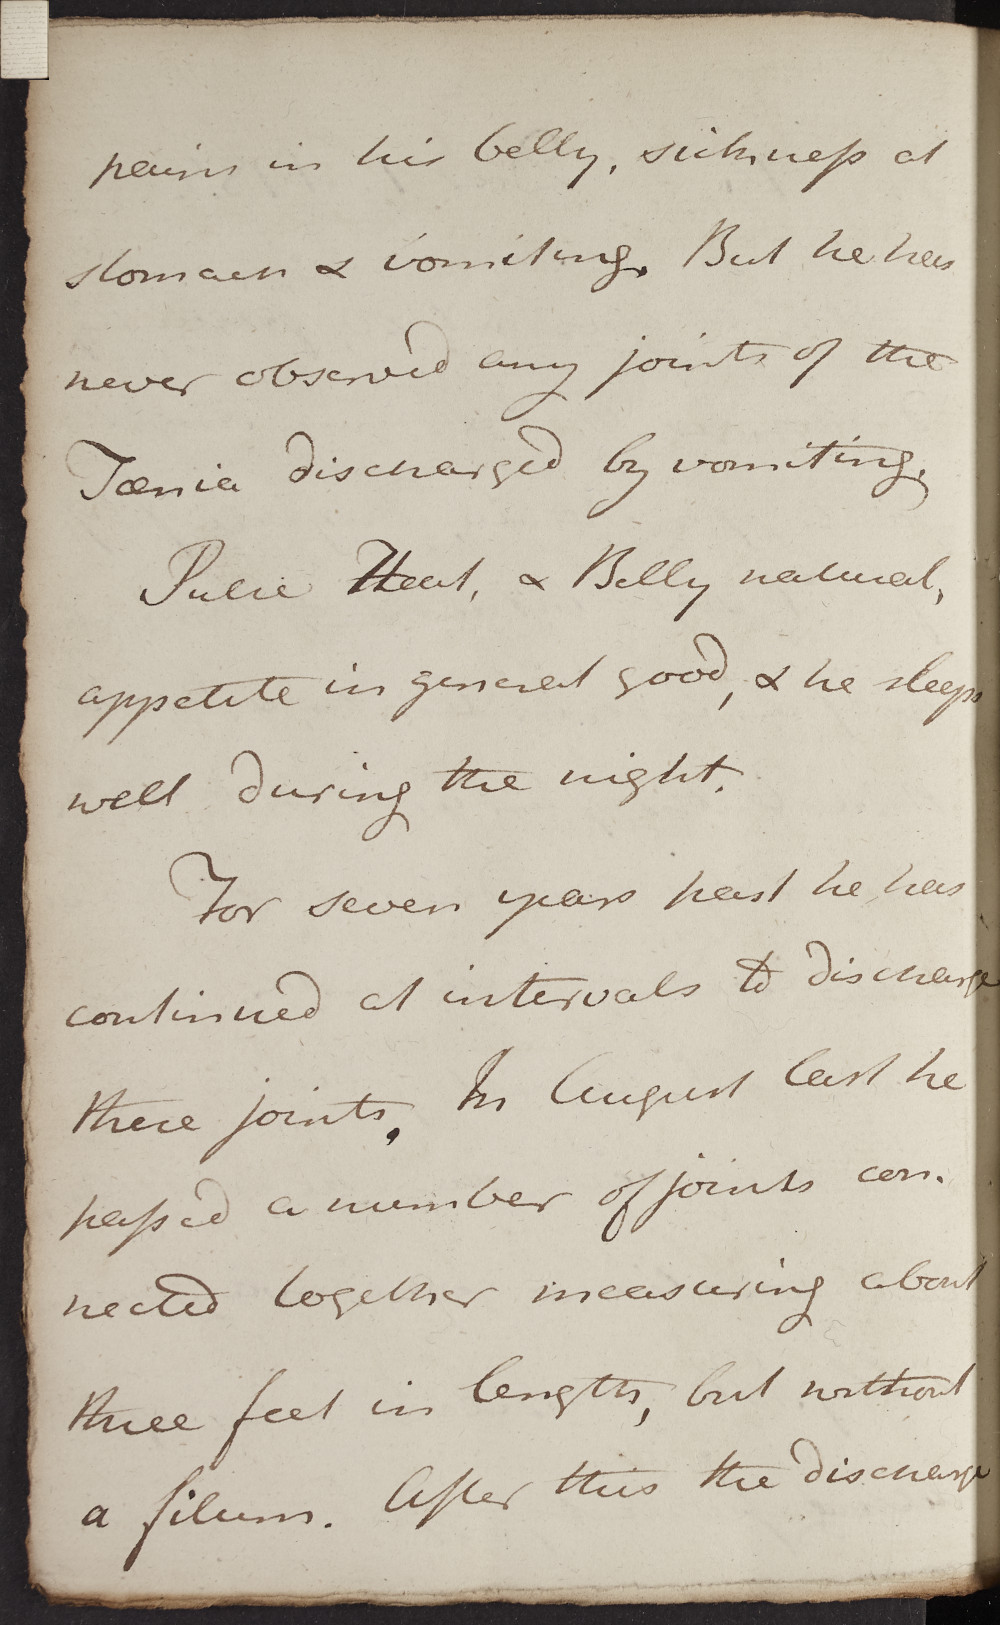 pains in his belly, sickness at
stomach & vomiting. But he has
never observed any joints of the
Tænia discharged by vomiting.
Pulse Heat, & Belly natural,
appetite in general good, & he sleeps
well during the night.
For seven years past he has
continued at intervals to discharge
these joints. In August last he
passed a number of joints con-
nected together measuring about
three feet in length, but without
a filum. After this the discharge